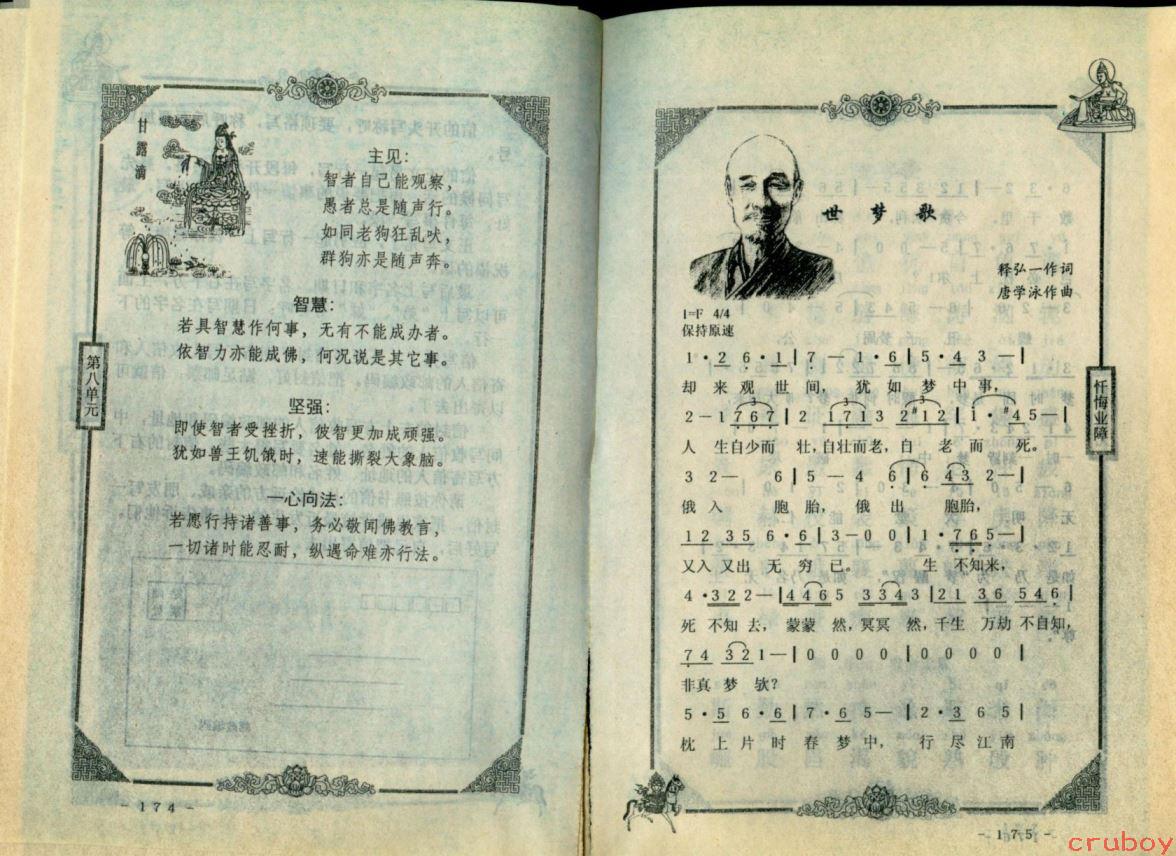 甘露滴
主见:
智者自己能观察，
愚者总是随声行。
如同老狗狂乱吠，
群狗亦是随声奔。
智慧:
若具智慧作何事，无有不能成办者。
依智力亦能成佛，何况说是其它事。
坚强:
即使智者受挫折，彼智更加成顽强。
犹如兽王饥饿时，速能撕裂大象脑。
一心向法:
若愿行持诸善事，务必敬闻佛教言，
一切诸时能忍耐，纵遇命难亦行法。
第八单元
- 174 -
世梦歌
释弘一作词
唐学泳作曲
1=F 4/4
保持原速
1·26·1|7—1·6|5·43—|
却来观世间，犹如梦中事，
2-1767|2 1713 2#12|1·#45—|
人生自少而壮,自壮而老,自老而死。
32—6|5—46|6 432—|
俄入胞胎，俄出胞胎，
1235 6·6|3-00|1·765—|
又入又出无穷已。生不知来，
4·322—|4465 3343|21 36 546|
死不知去，蒙蒙然,冥冥然,千生万劫不自知,
74 321—|0000|0000|
非真梦欤?
5·56·6|7·65—|2·365|
枕上片时春梦中，行尽江南
忏悔业障
- 175 -
cruboy